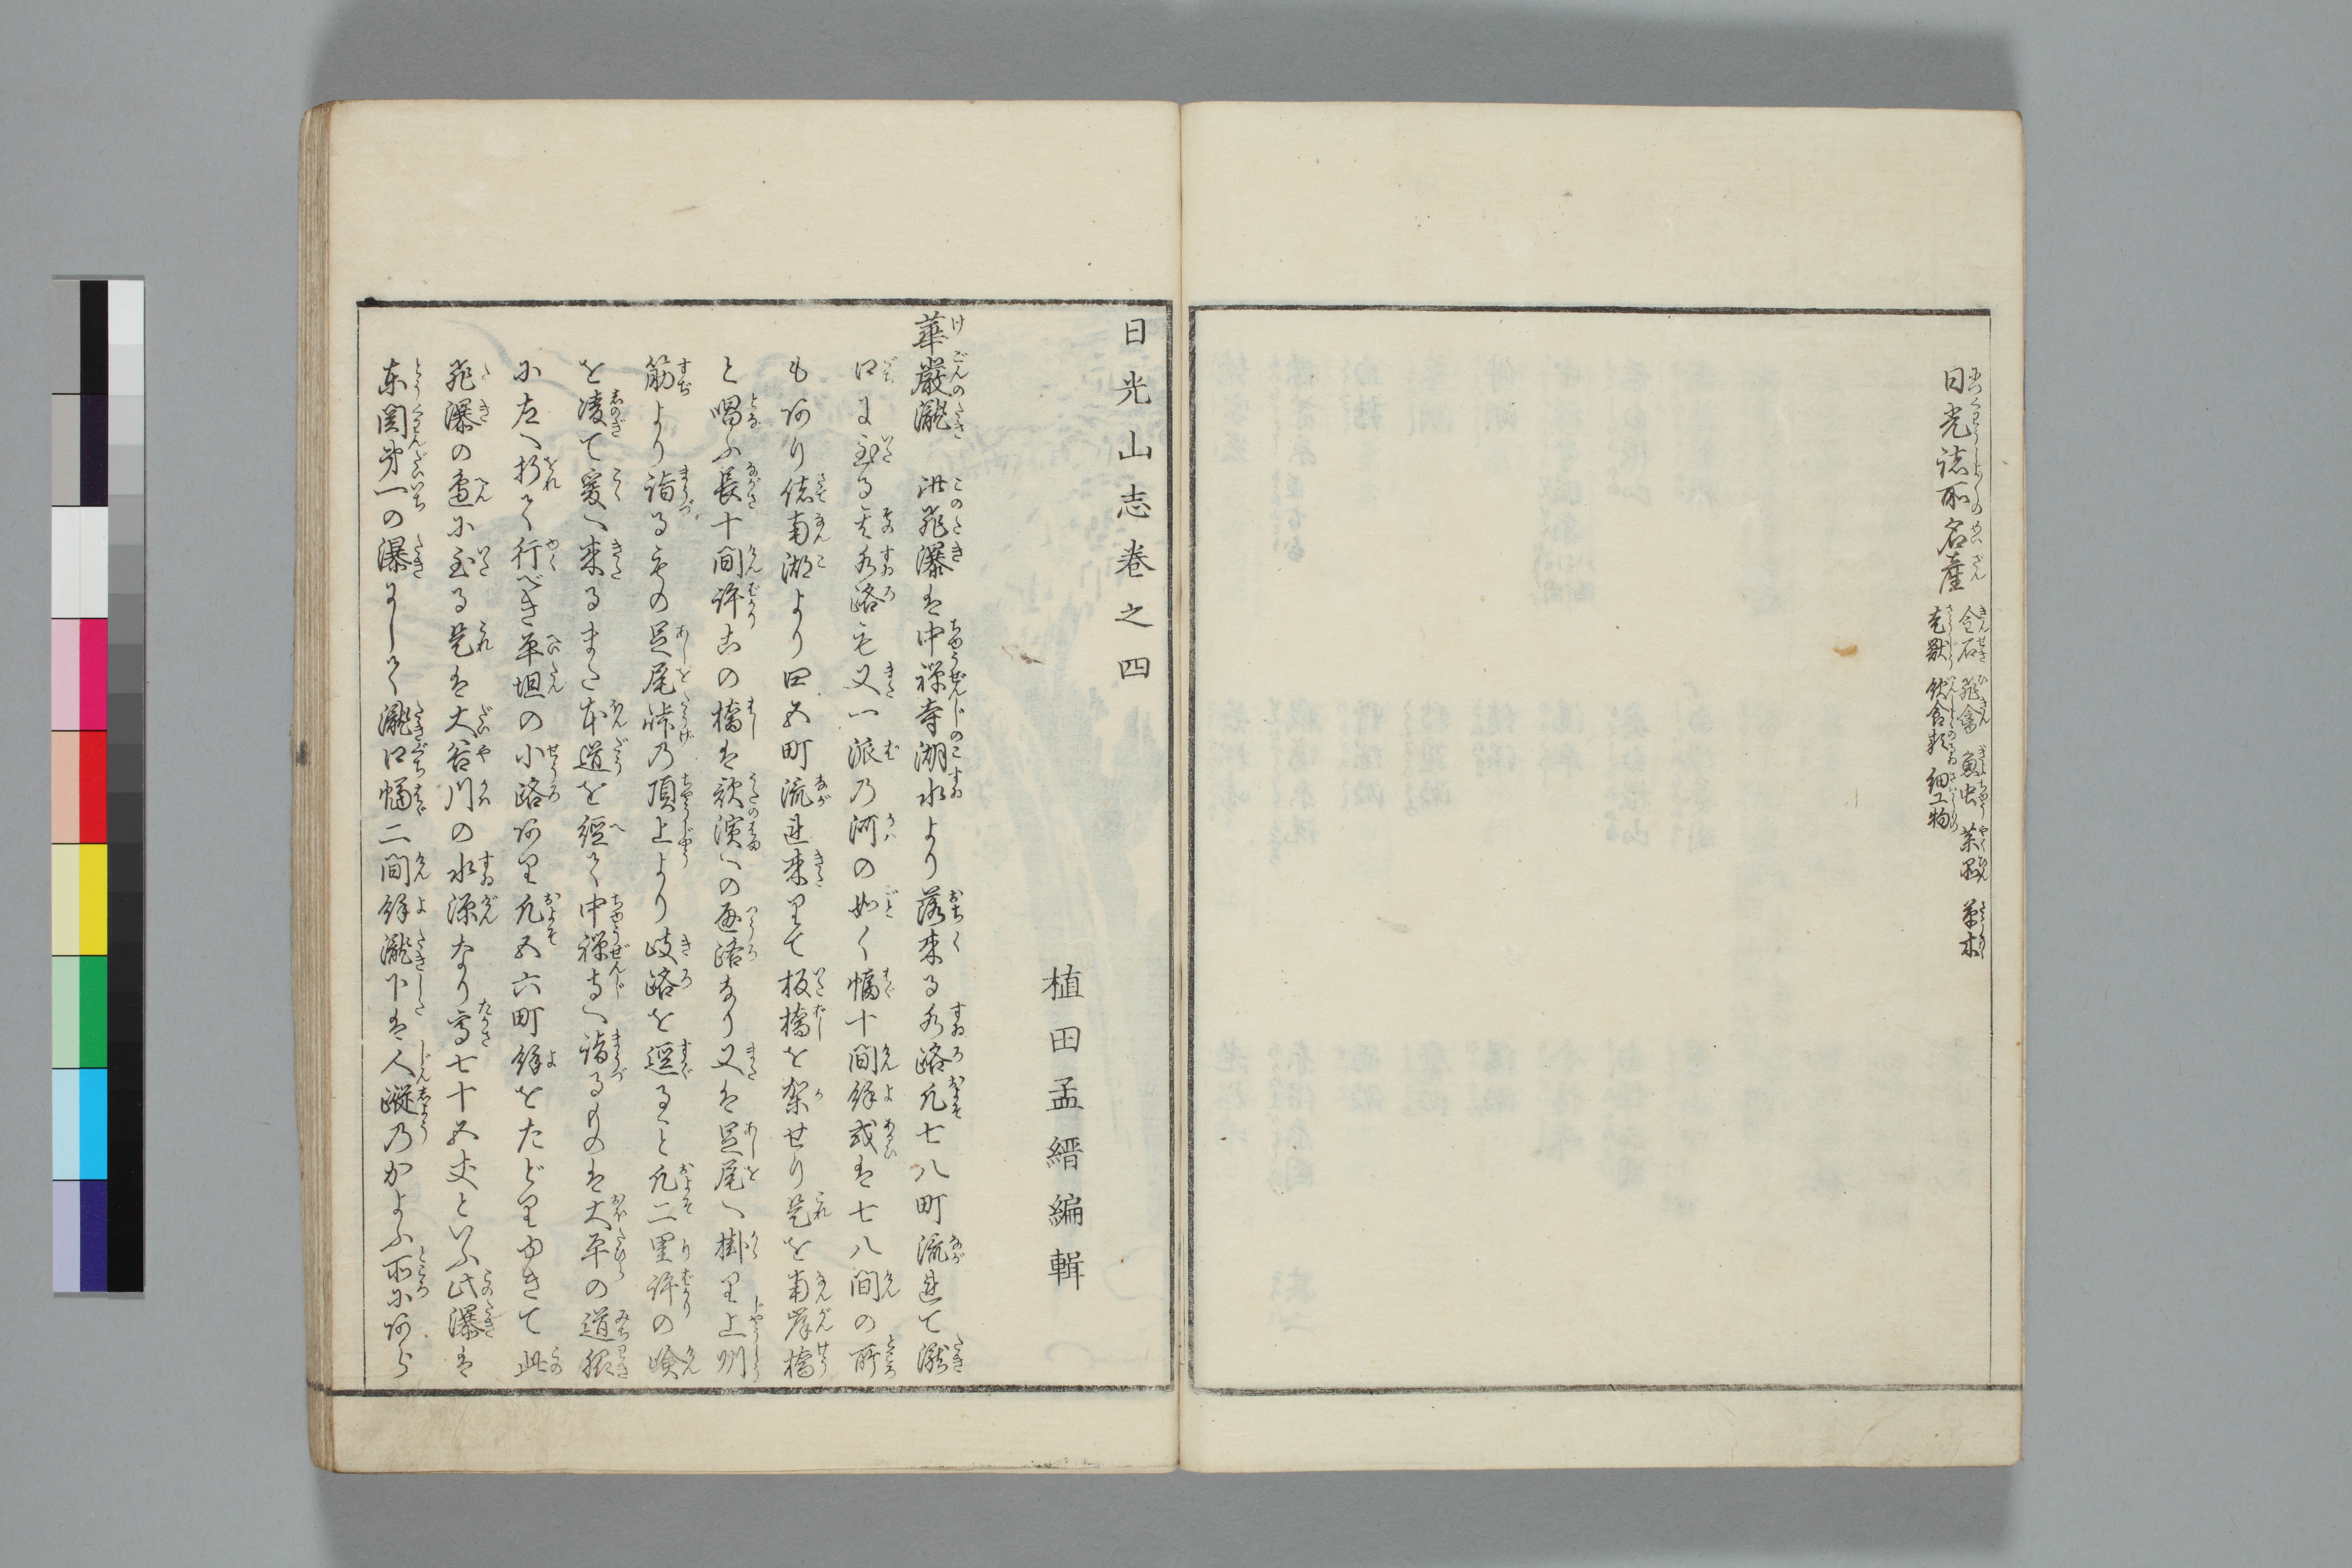 日光諸所名産
金石 飛禽 魚虫 薬品 草木
走獣 飲食類 細工物
日光山志巻之四
植田孟縉編輯
華厳瀧 此飛瀑は中禅寺湖水より落来る水路凡七八町流出て瀧
口に至る其水路も又一派の河の如く幅十間餘或は七八間の所
もあり偖南湖より四五町流出来りて板橋を架せり是を南岸橋
と唱ふ長十間許この橋は歌濱への通路なり又は足尾へ掛り上州
筋より詣るもの足尾峠の頂上より岐路を過ること凡二里許の嶮
を凌て爰へ来るまた本道を経て中禅寺へ詣るものは大平の道服
に左へ折て行べき平坦の小路あり凡五六町餘をたどりゆきて此
飛瀑の邊に至る是は大谷川の水源なり高七十五丈といふ此瀑は
東関第一の瀑にして瀧口幅二間餘瀧下は人蹤のかよふ所にあら